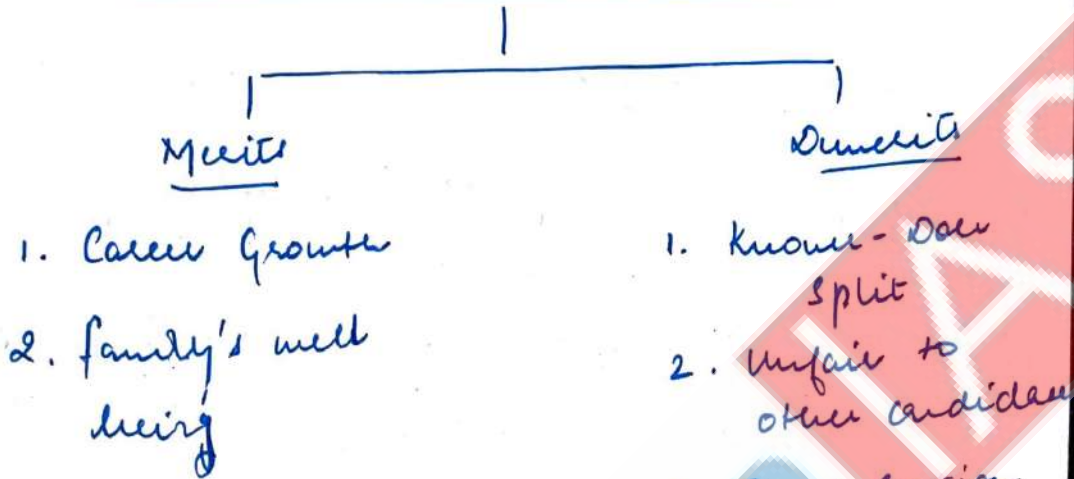 Merits
1. Career Growth
2. family's well
being
Demerits
1. Known - Doer
split
2. Unfair to
other candidates